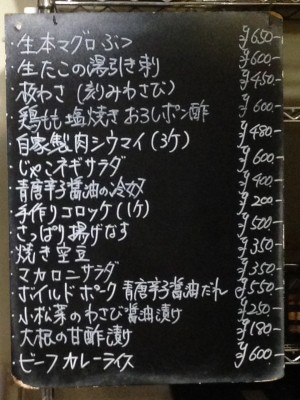 ・生本マグロぶつ ¥650-
・生たこの湯引き刺 ¥600-
・板わさ(刻みわさび) ¥450-
・鶏もも塩焼きおろしポン酢 ¥600-
・自家製肉シウマイ(3ケ) ¥480-
・じゃこネギサラダ ¥600-
・青唐辛子醤油の冷奴 ¥400-
・手作りコロッケ(1ケ) ¥200-
・さっぱり揚げなす ¥500-
・焼き空豆 ¥350-
・マカロニサラダ ¥350-
・ボイルドポーク青唐辛子醤油だれ ¥550-
・小松菜のわさび醤油漬け ¥250-
・大根の甘酢漬け ¥180-
・ビーフカレーライス ¥600-